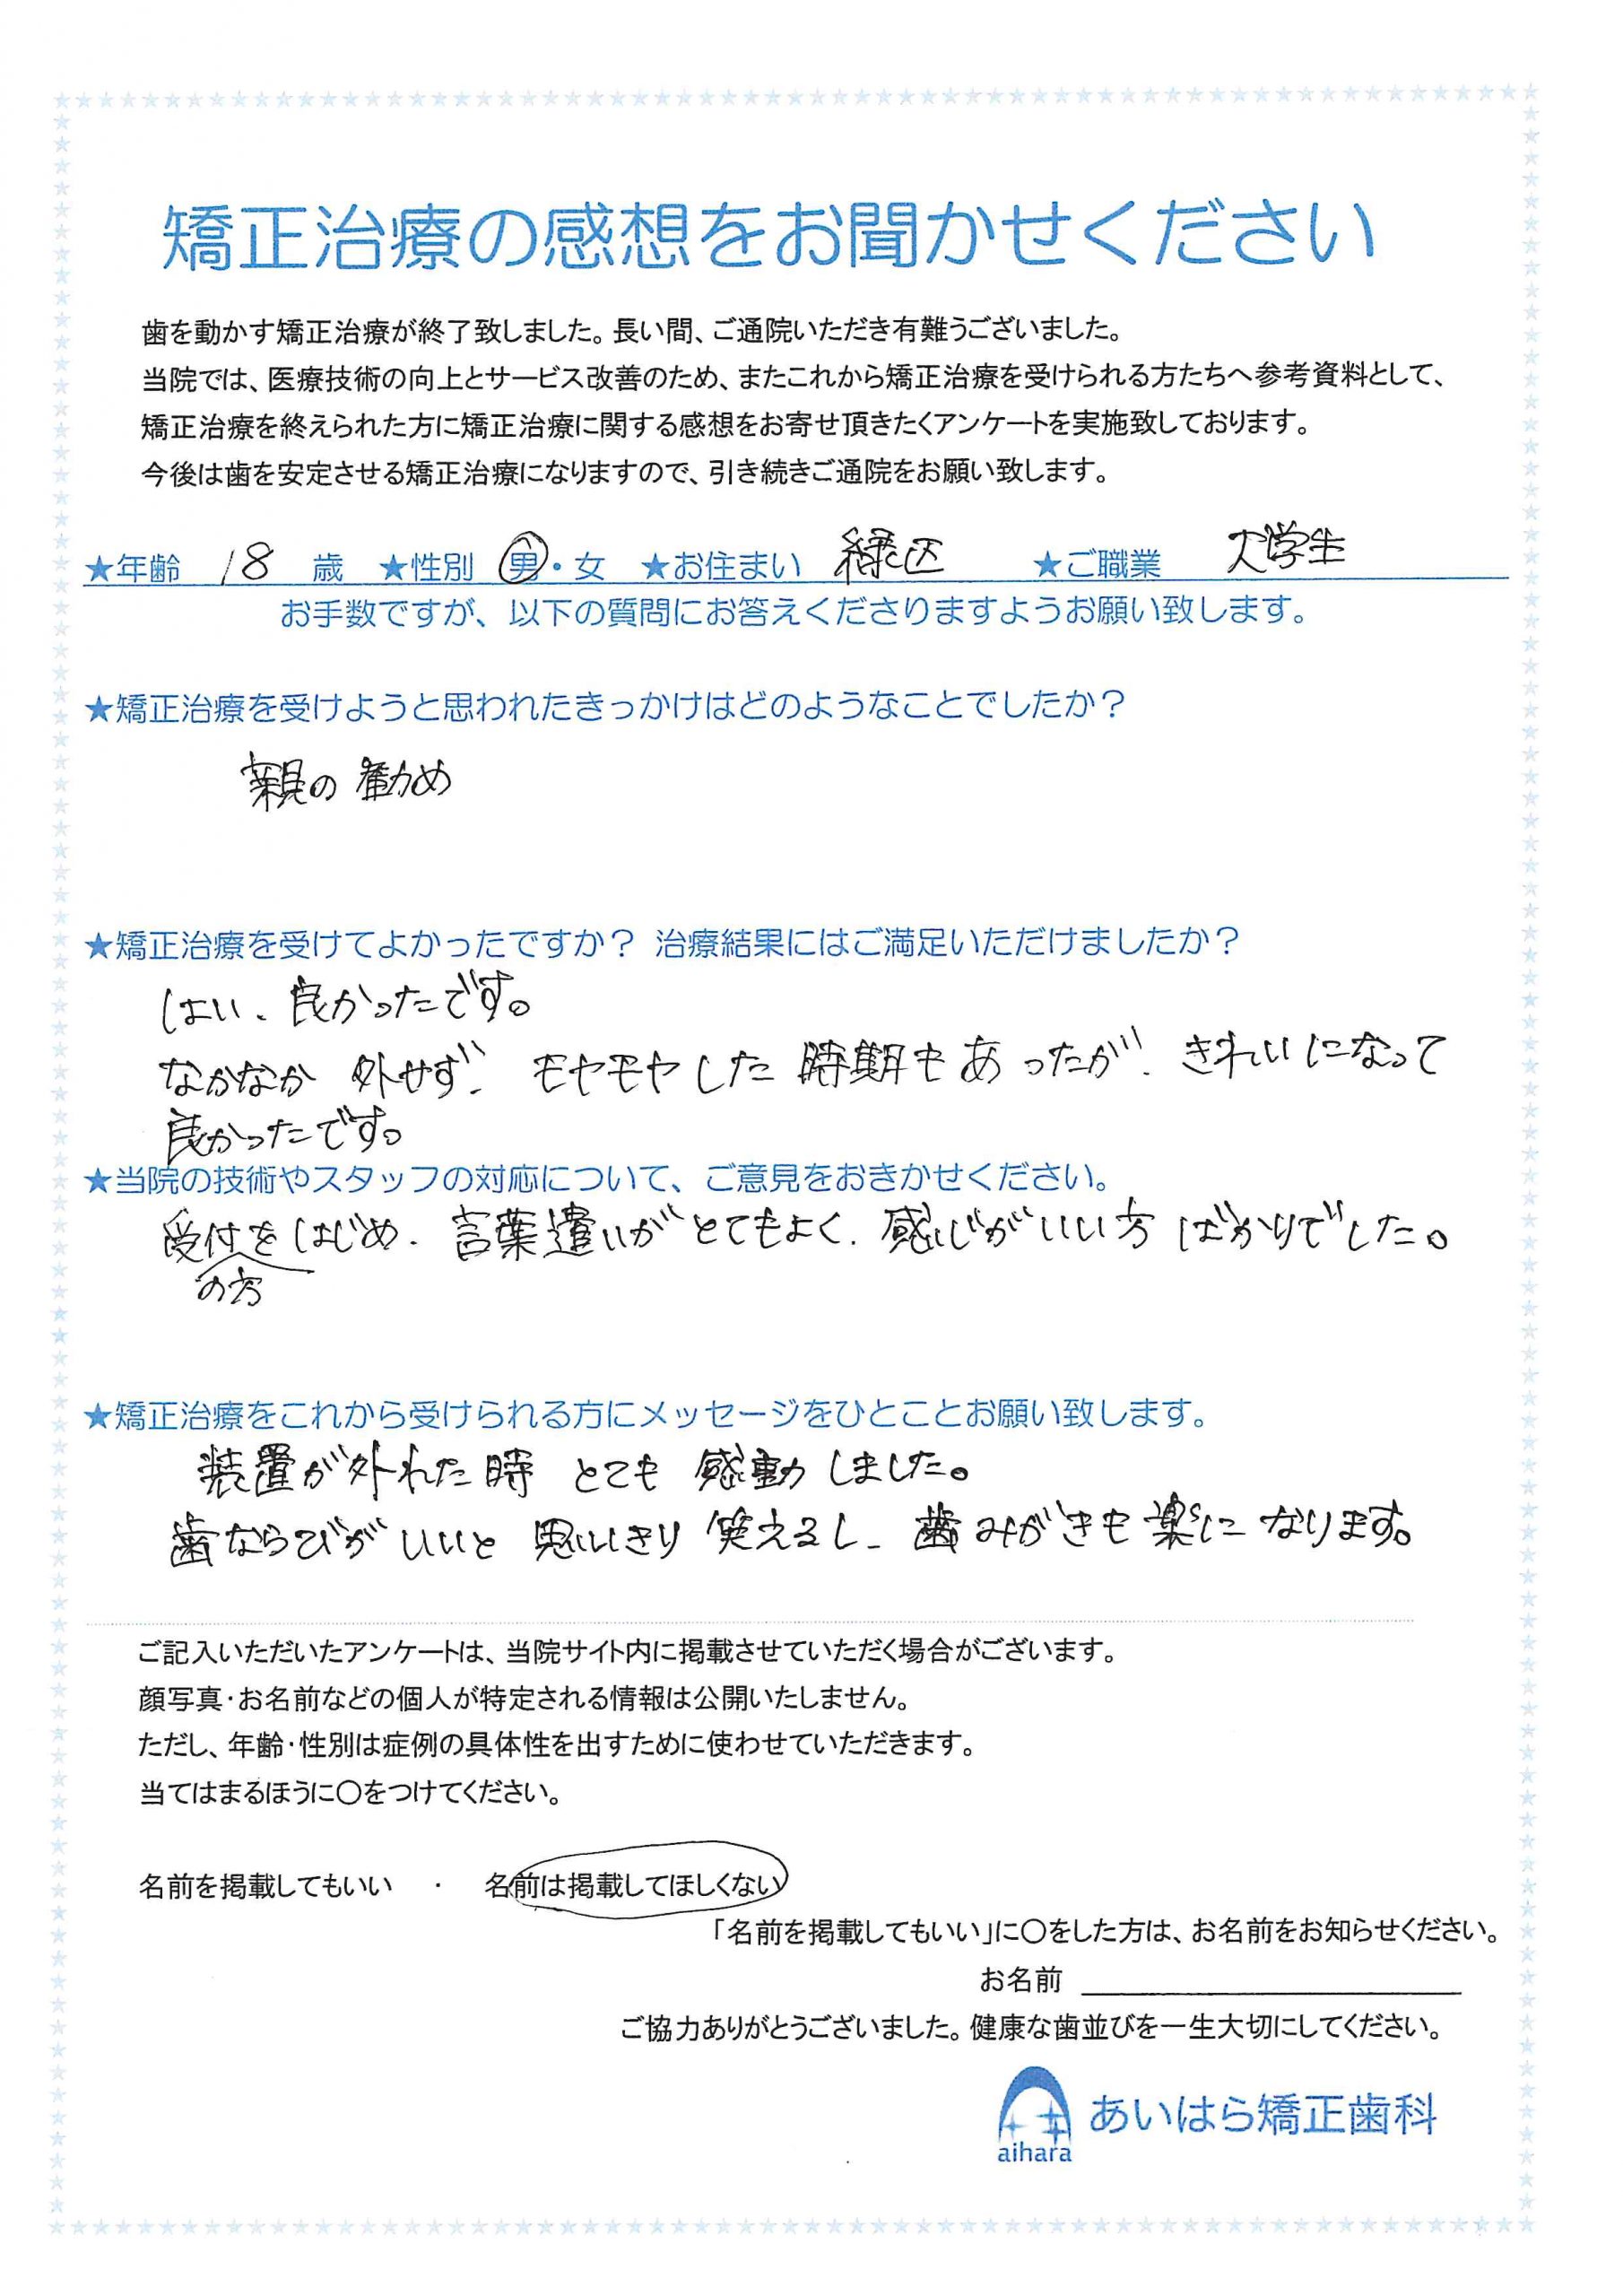 矯正治療の感想をお聞かせください
歯を動かす矯正治療が終了致しました。長い間、ご通院いただき有難うございました。
当院では、医療技術の向上とサービス改善のため、またこれから矯正治療を受けられる方たちへ参考資料として、
矯正治療を終えられた方に矯正治療に関する感想をお寄せ頂きたくアンケートを実施致しております。
今後は歯を安定させる矯正治療になりますので、引き続きご通院をお願い致します。
★年齢 18 歳 ★性別 男・女 ★お住まい 緑区 ★ご職業 大学生
お手数ですが、以下の質問にお答えくださりますようお願い致します。
★矯正治療を受けようと思われたきっかけはどのようなことでしたか？
親の勧め
★矯正治療を受けてよかったですか？ 治療結果にはご満足いただけましたか？
はい、良かったです。
なかなか 外せず、モヤモヤした時期もあったが、きれいになって
良かったです。
★当院の技術やスタッフの対応について、ご意見をおきかせください。
受付をはじめ、言葉遣いがとてもよく、感じがいい方ばかりでした。
の方
★矯正治療をこれから受けられる方にメッセージをひとことお願い致します。
装置が外れた時 とても 感動しました。
歯ならびがいいと 思いきり 笑えるし、歯みがきも楽になります。
ご記入いただいたアンケートは、当院サイト内に掲載させていただく場合がございます。
顔写真・お名前などの個人が特定される情報は公開いたしません。
ただし、年齢・性別は症例の具体性を出すために使わせていただきます。
当てはまるほうに〇をつけてください。
名前を掲載してもいい ・ 名前は掲載してほしくない
「名前を掲載してもいい」に〇をした方は、お名前をお知らせください。
お名前
ご協力ありがとうございました。健康な歯並びを一生大切にしてください。
あいはら矯正歯科
aihara